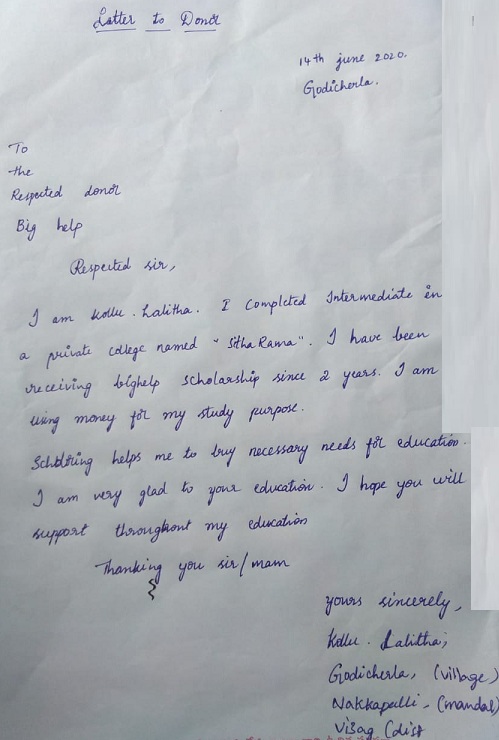 Letter to Donor
14th june 2020.
Godicherla.
To
the
Respected donor
Big help
Respected sir,
I am Kollu. Lalitha. I completed Intermediate in
a private college named "Sitha Rama". I have been
receiving bighelp scholarship since 2 years. I am
using money for my study purpose.
helps me to buy necessary needs for education.
I am very glad to your education. I hope you will
support throughout my education
Thanking you sir/mam
yours sincerely,
Kollu. Lalitha;
Godicherla, (village)
Nakkapalli, (mandal)
Visag (dist